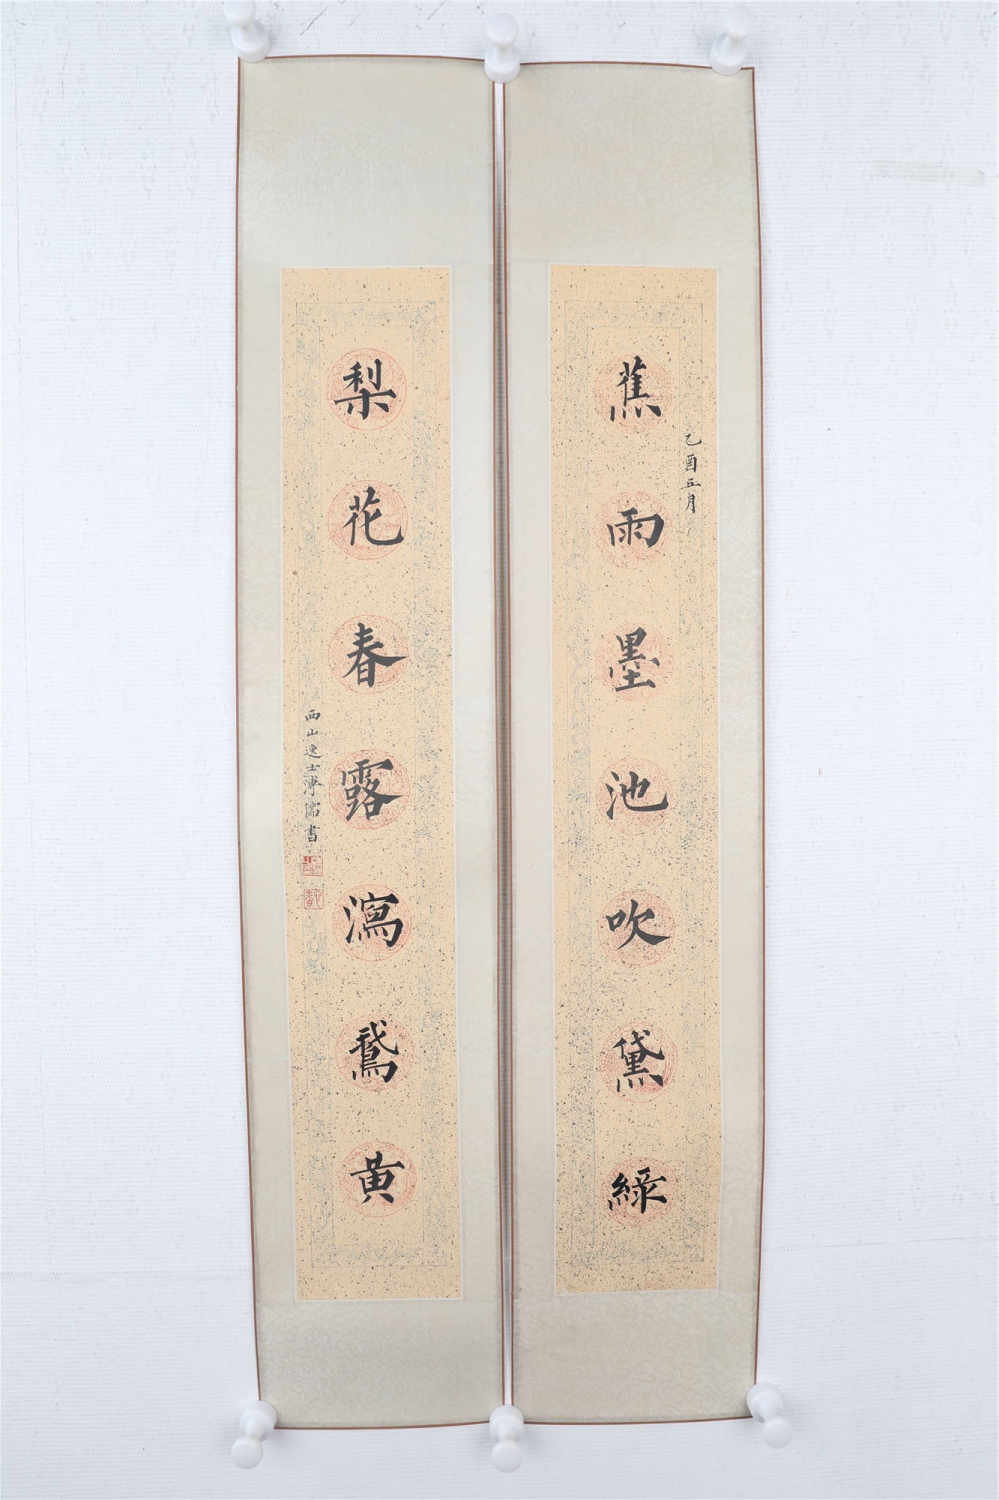 乙酉正月
蕉雨墨池吹黛綠
梨花春露瀉鵞黄
西山逸士溥儒書